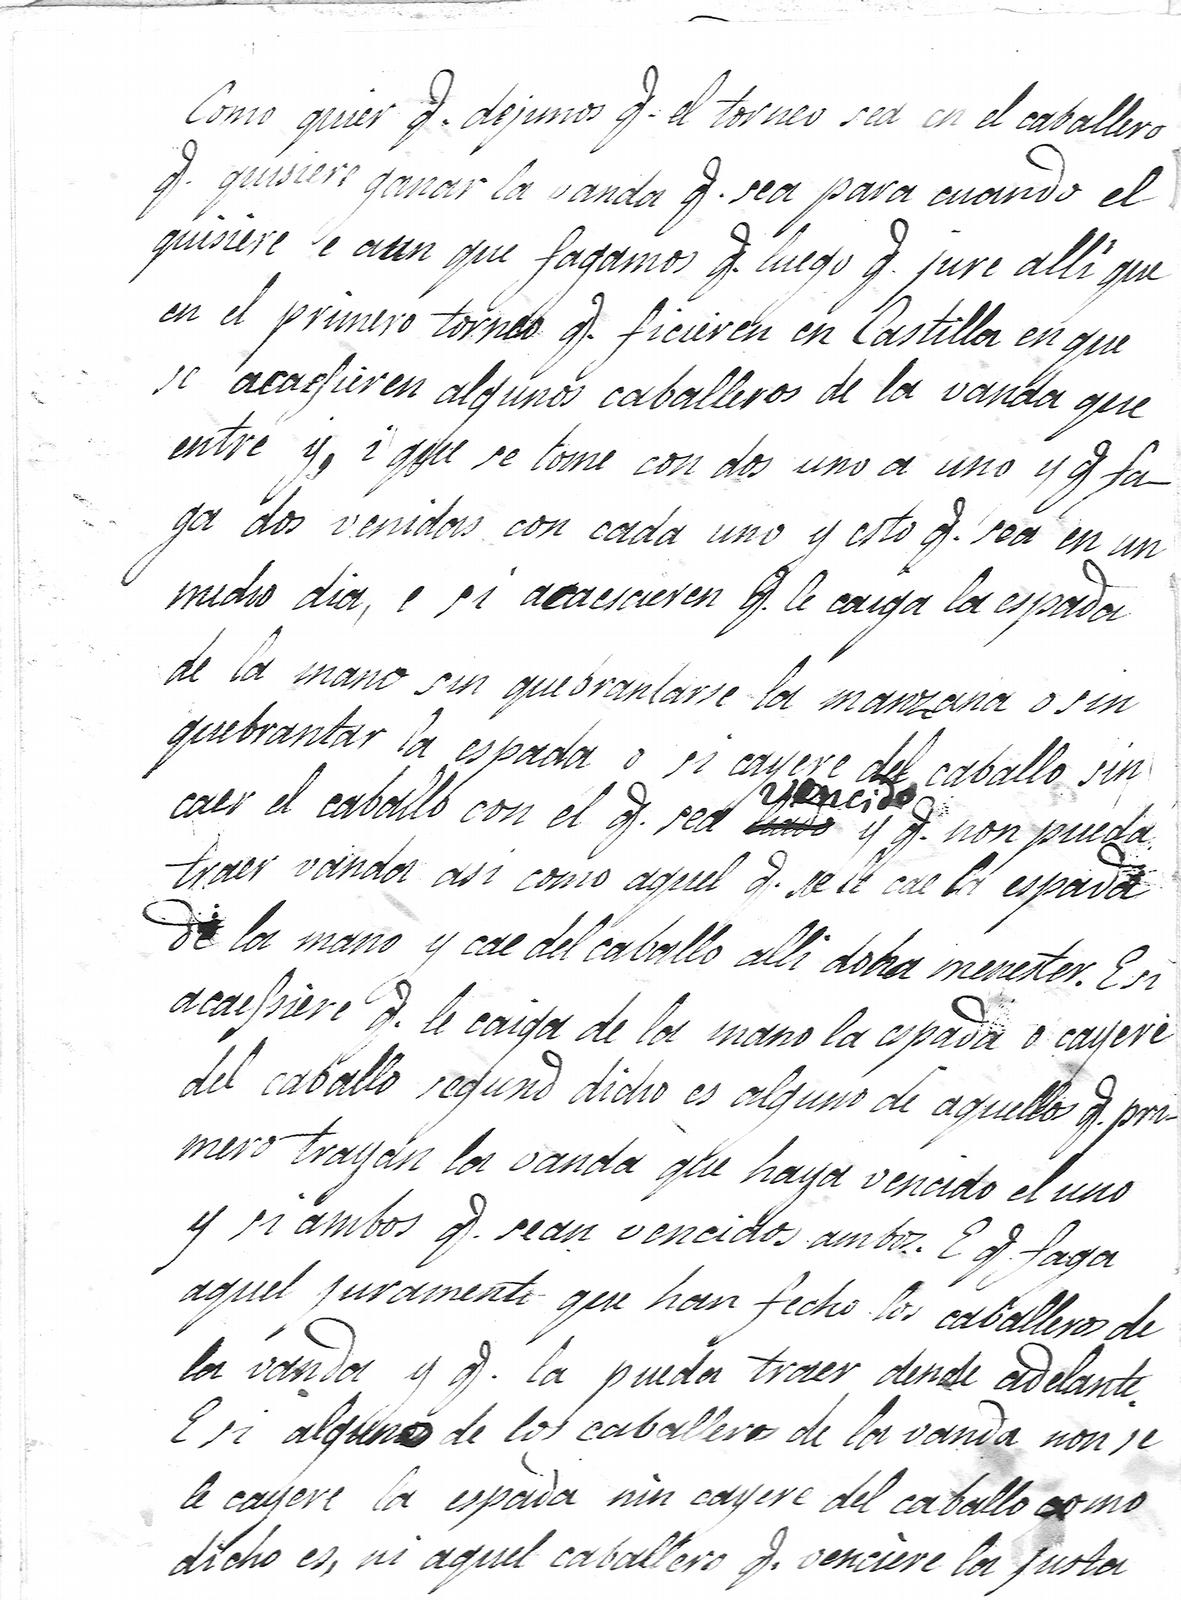 Como quier q. dejimos q. el torneo sea en el caballero
q. quisiere ganar la vanda q. sea para cuando el
quisiere e aun que fagamos q. luego q. jure alli que
en el primero torneo q. ficieren en Castilla en que
se acaessieren algunos caballeros de la vanda que
entre y, i que se tome con dos uno a uno y q fa-
ga dos venidas con cada uno y esto q. sea en un
medio dia, e si acaescieren q. le caiga la espada
de la mano sin quebrantarse la manzana o sin
quebrantar la espada o si cayere del caballo sin
caer el caballo con el q. sea vencido y q. non pueda
traer vanda asi como aquel q. se le cae la espada
de la mano y cae del caballo alli do ha menester. E si
acaessiere q. le caiga de la mano la espada o cayere
del caballo segund dicho es alguno de aquellos q. pri-
mero trayan la vanda que haya vencido el uno
y si ambos q. sean vencidos ambos. E q. faga
aquel juramento que han fecho los caballeros de
la vanda y q. la pueda traer dende adelante.
E si alguno de los caballeros de la vanda non se
le cayere la espada nin cayere del caballo como
dicho es, ni aquel caballero q. venciere la justa